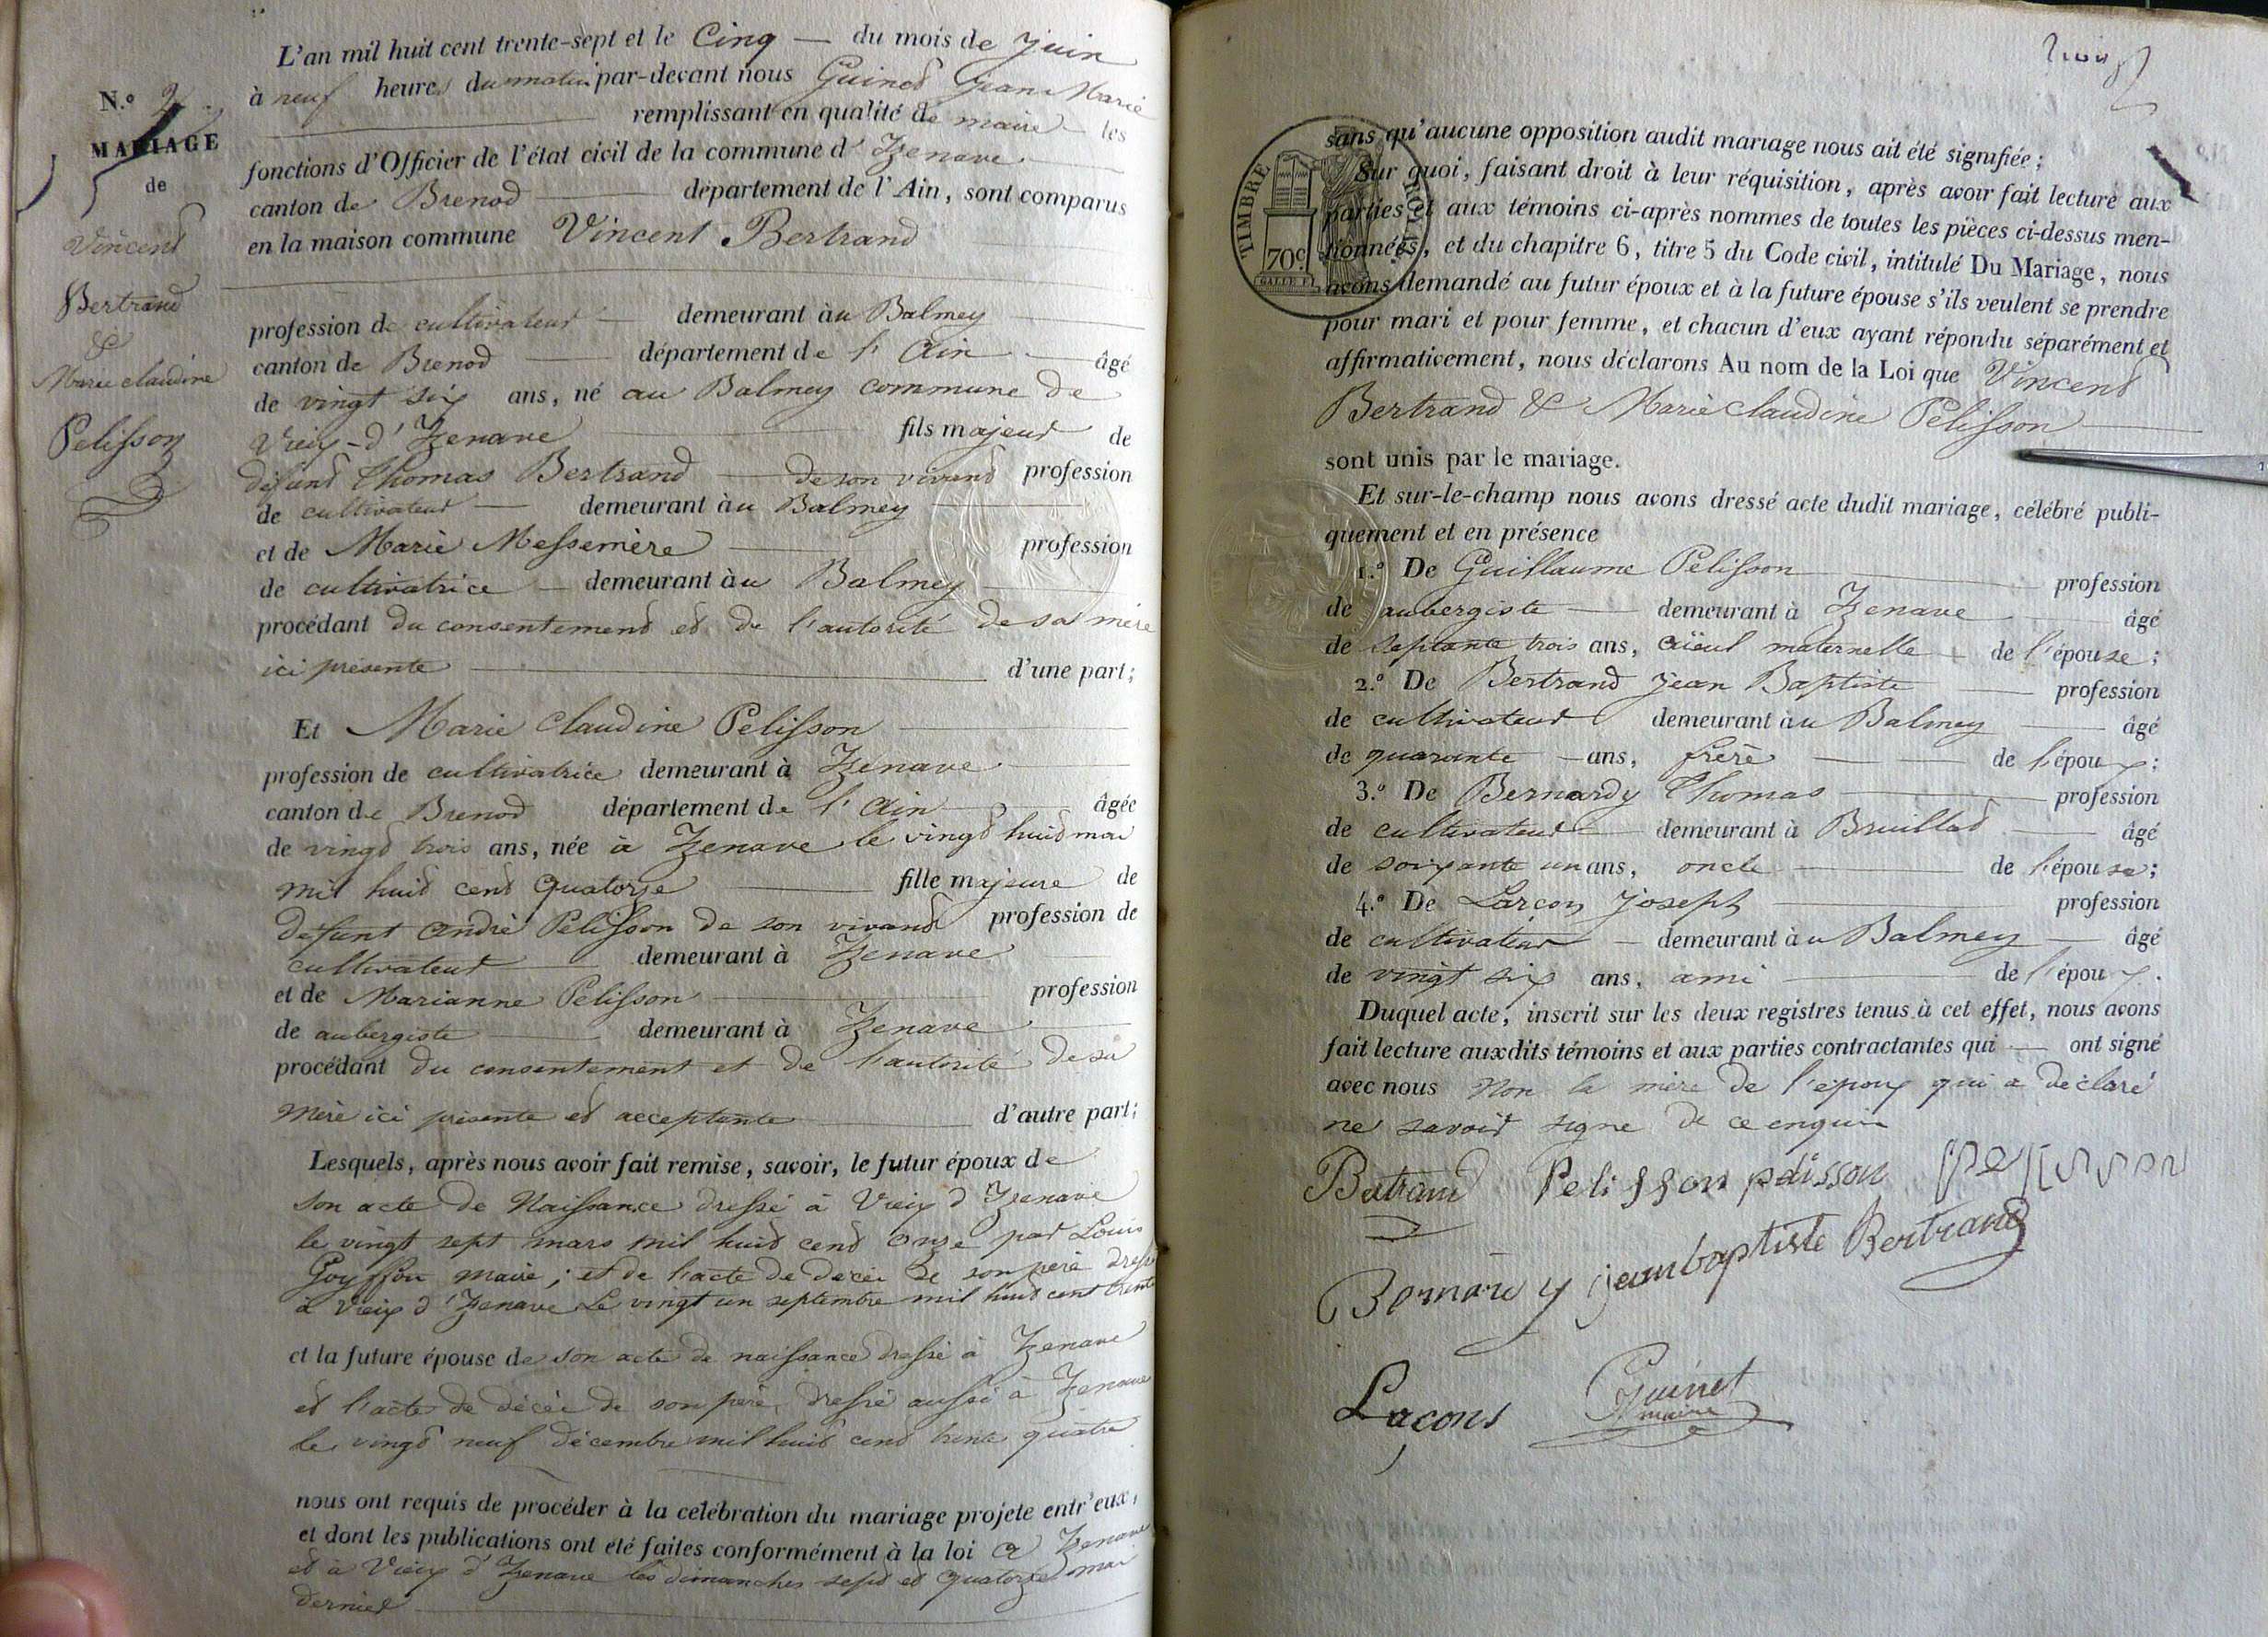 L'an mil huit cent trente-sept et le Cinq — du mois de Juin
à neuf heures du matin par-devant nous Guinet Jean Marie
remplissant en qualité de maire les
fonctions d'Officier de l'état civil de la commune d'Izenave
canton de Brenod département de l'Ain, sont comparus
en la maison commune Vincent Bertrand
N.° 2
MARIAGE
de
Vincent
Bertrand
&
Marie claudine
Pelisson
profession de cultivateur demeurant au Balmey
canton de Brenod département de l'Ain âgé
de vingt six ans, né au Balmey commune de
Vieix-d'Izenave fils majeur de
défunt Thomas Bertrand de son vivant profession
de cultivateur demeurant au Balmey
et de Marie Messemère profession
de cultivatrice demeurant au Balmey
procédant du consentement et de l'autorité de sa mère
ici présente d'une part;
Et Marie Claudine Pelisson
profession de cultivatrice demeurant à Izenave
canton de Brenod département de l'Ain âgée
de vingt trois ans, née à Izenave le vingt huit mai
mil huit cent quatorze fille majeure de
defunt André Pelisson de son vivant profession de
cultivateur demeurant à Izenave
et de Marianne Pelisson profession
de aubergiste demeurant à Izenave
procédant du consentement et de l'autorité de sa
mère ici présente et acceptante d'autre part;
Lesquels, après nous avoir fait remise, savoir, le futur époux de
son acte de Naissance dressé à Vieix d'Izenave
le vingt sept mars mil huit cent onze par Louis
Goyffon maire; et de l'acte de décée de son père dressé
à Vieix d'Izenave Le vingt un septembre mil huit cent trente
et la future épouse de son acte de naissance dressé à Izenave
et l'acte de décée de son père, dressé aussi à Izenave
le vingt neuf décembre mil huit cent trente quatre
nous ont requis de procéder à la célébration du mariage projeté entr'eux,
et dont les publications ont été faites conformément à la loi à Izenave
et à Vieix d'Izenave les dimanches sept et quatorze mai
dernier
TIMBRE ROYAL
70c.
sans qu'aucune opposition audit mariage nous ait été signifiée;
Sur quoi, faisant droit à leur réquisition, après avoir fait lecture aux
parties et aux témoins ci-après nommés de toutes les pièces ci-dessus men-
tionnées, et du chapitre 6, titre 5 du Code civil, intitulé Du Mariage, nous
avons demandé au futur époux et à la future épouse s'ils veulent se prendre
pour mari et pour femme, et chacun d'eux ayant répondu séparément et
affirmativement, nous déclarons Au nom de la Loi que Vincent
Bertrand & Marie claudine Pelisson
sont unis par le mariage.
Et sur-le-champ nous avons dressé acte dudit mariage, célébré publi-
quement et en présence
1.° De Guillaume Pelisson profession
de aubergiste demeurant à Izenave âgé
de septante trois ans, aïeul maternelle de l'épouse;
2.° De Bertrand Jean Baptiste profession
de cultivateur demeurant au Balmey âgé
de quarante ans, frère de l'époux;
3.° De Bernardy Thomas profession
de cultivateur demeurant à Bruillat âgé
de soixante un ans, oncle de l'épouse;
4.° De Larcon Joseph profession
de cultivateur demeurant au Balmey âgé
de vingt six ans, ami de l'époux.
Duquel acte, inscrit sur les deux registres tenus à cet effet, nous avons
fait lecture auxdits témoins et aux parties contractantes qui — ont signé
avec nous Non la mère de l'époux qui a déclaré
ne savoir signe de ce enquire
Bertrand Pelisson pelisson pelisson
Bernardy jeanbaptiste Bertrand
Laçons Guinet
maire